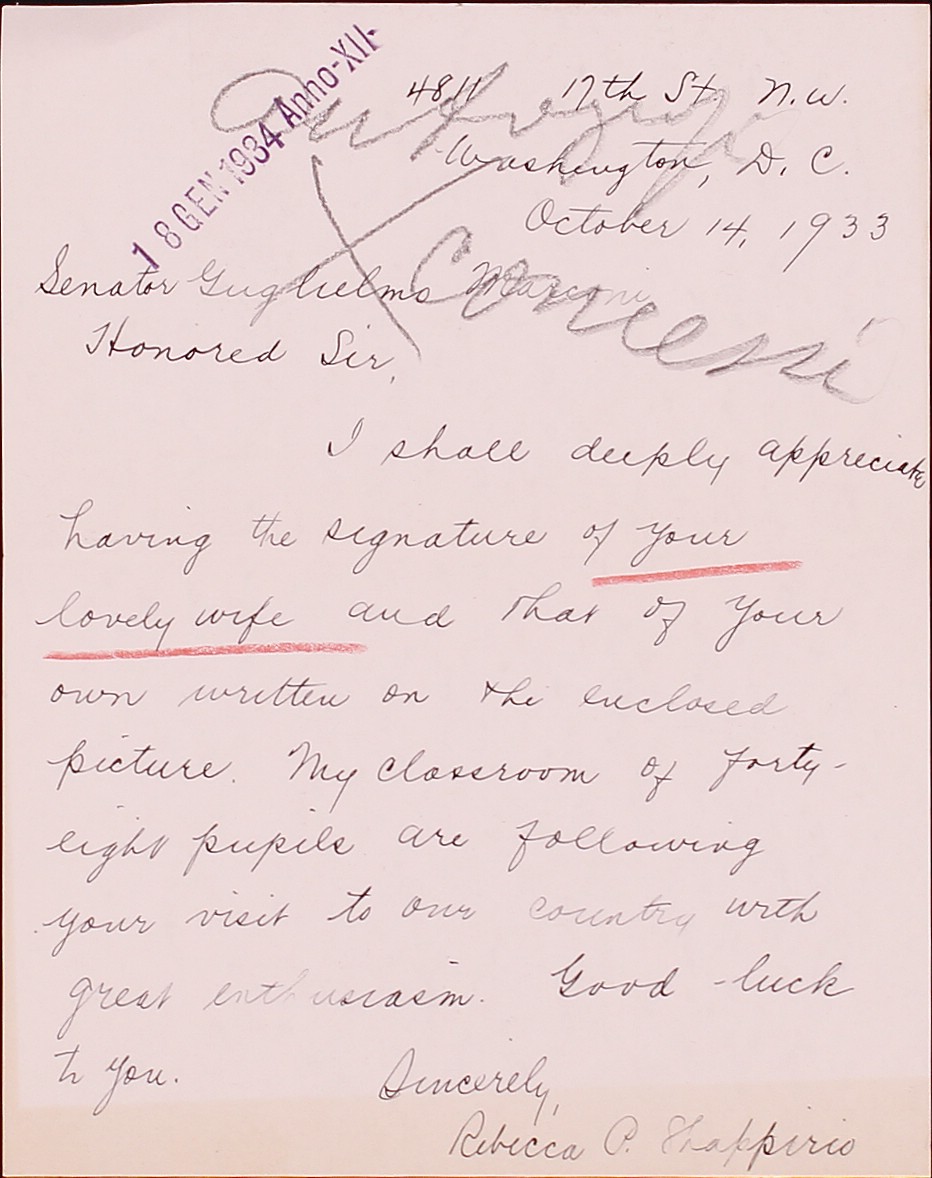 18 GEN 1934 Anno-XII-
4811 17th St. N.W.
Washington, D. C.
October 14, 1933
Senator Guglielmo Marconi
Concessi
Honored Sir,
I shall deeply appreciate
having the signature of your
lovely wife and that of your
own written on the enclosed
picture. My classroom of forty-
eight pupils are following
your visit to our country with
great enthusiasm. Good luck
to you.
Sincerely,
Rebecca P. Shappirio